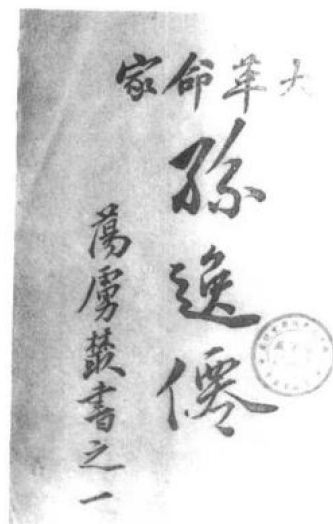 大革命家
孫逸僊
蕩虜叢書之一